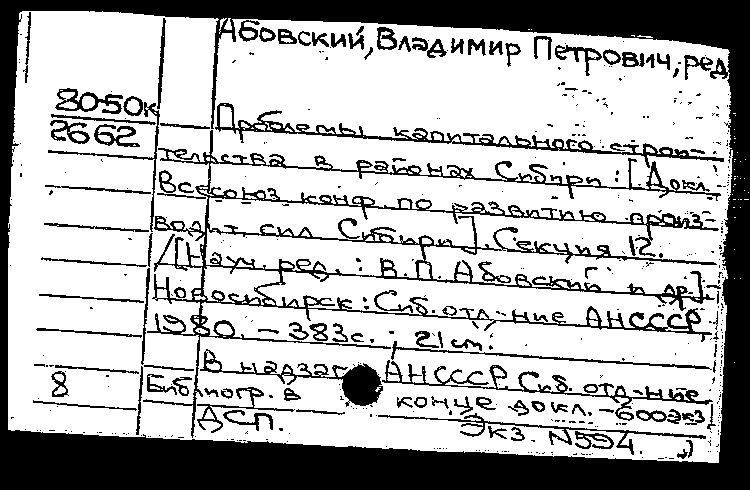 Абовский, Владимир Петрович, ред
8050к
2662
Проблемы капитального строи-
тельства в районах Сибири : [Докл.
Всесоюз. конф. по развитию произ-
водит. сил Сибири]. Секция 12.
/[Науч. ред. : В.П. Абовский и др.].-
Новосибирск : Сиб. отд-ние АНСССР,
1980. - 383с. ; 21см.
В надзаг. АНСССР. Сиб. отд-ние
8 Библиогр. в конце докл. - 600экз
ДСП. Экз. N594.